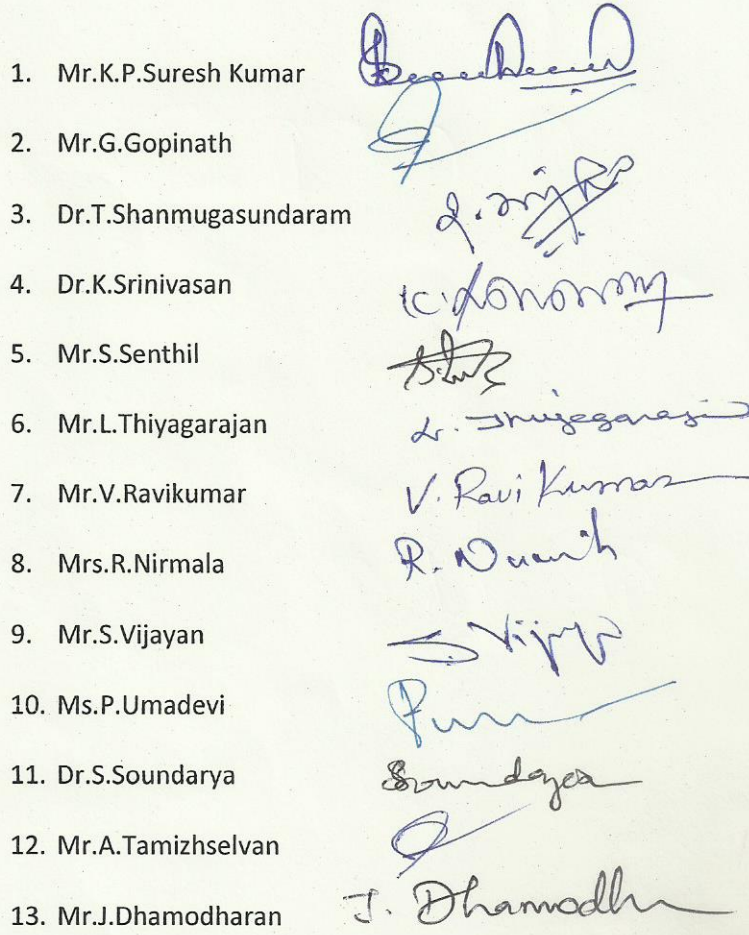 1. Mr.K.P.Suresh Kumar
2. Mr.G.Gopinath
3. Dr.T.Shanmugasundaram
4. Dr.K.Srinivasan
5. Mr.S.Senthil
6. Mr.L.Thiyagarajan L. Thiyagarajan
7. Mr.V.Ravikumar V. Ravi Kumar
8. Mrs.R.Nirmala R.
9. Mr.S.Vijayan S. Vijaya
10. Ms.P.Umadevi
11. Dr.S.Soundarya Soundarya
12. Mr.A.Tamizhselvan
13. Mr.J.Dhamodharan J. Dhamodh